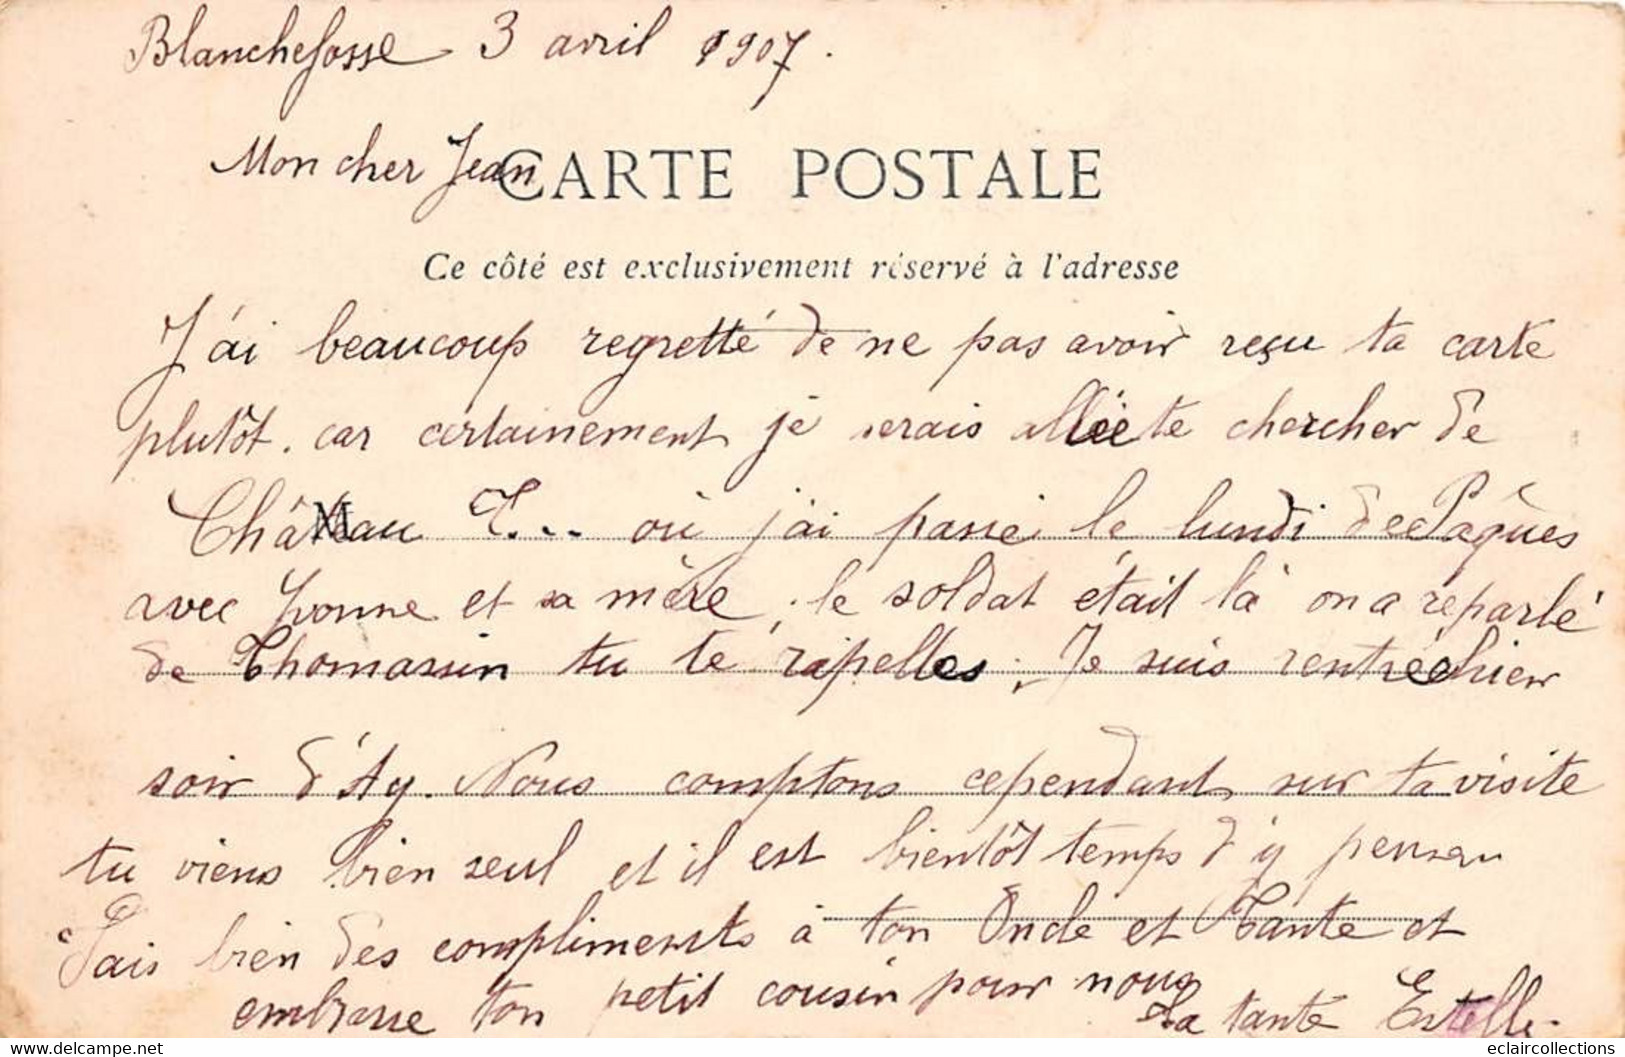 Blanchefosse 3 avril 1907.
Mon cher Jean
CARTE POSTALE
Ce côté est exclusivement réservé à l'adresse
J'ai beaucoup regretté de ne pas avoir reçu ta carte
plutôt. car certainement je serais allée te chercher de
Château T... où j'ai passé le lundi de Pâques
avec Yvonne et sa mère, le soldat était là on a reparlé
de Thomassin tu te rapelles. Je suis rentrée hier
soir d'Ay. Nous comptons cependant sur ta visite
tu viens bien seul et il est bientôt temps d'y penser
Fais bien des compliments à ton Oncle et Tante et
embrasse ton petit cousin pour nous
Ta tante Estelle.
www.delcampe.net
eclaircollections